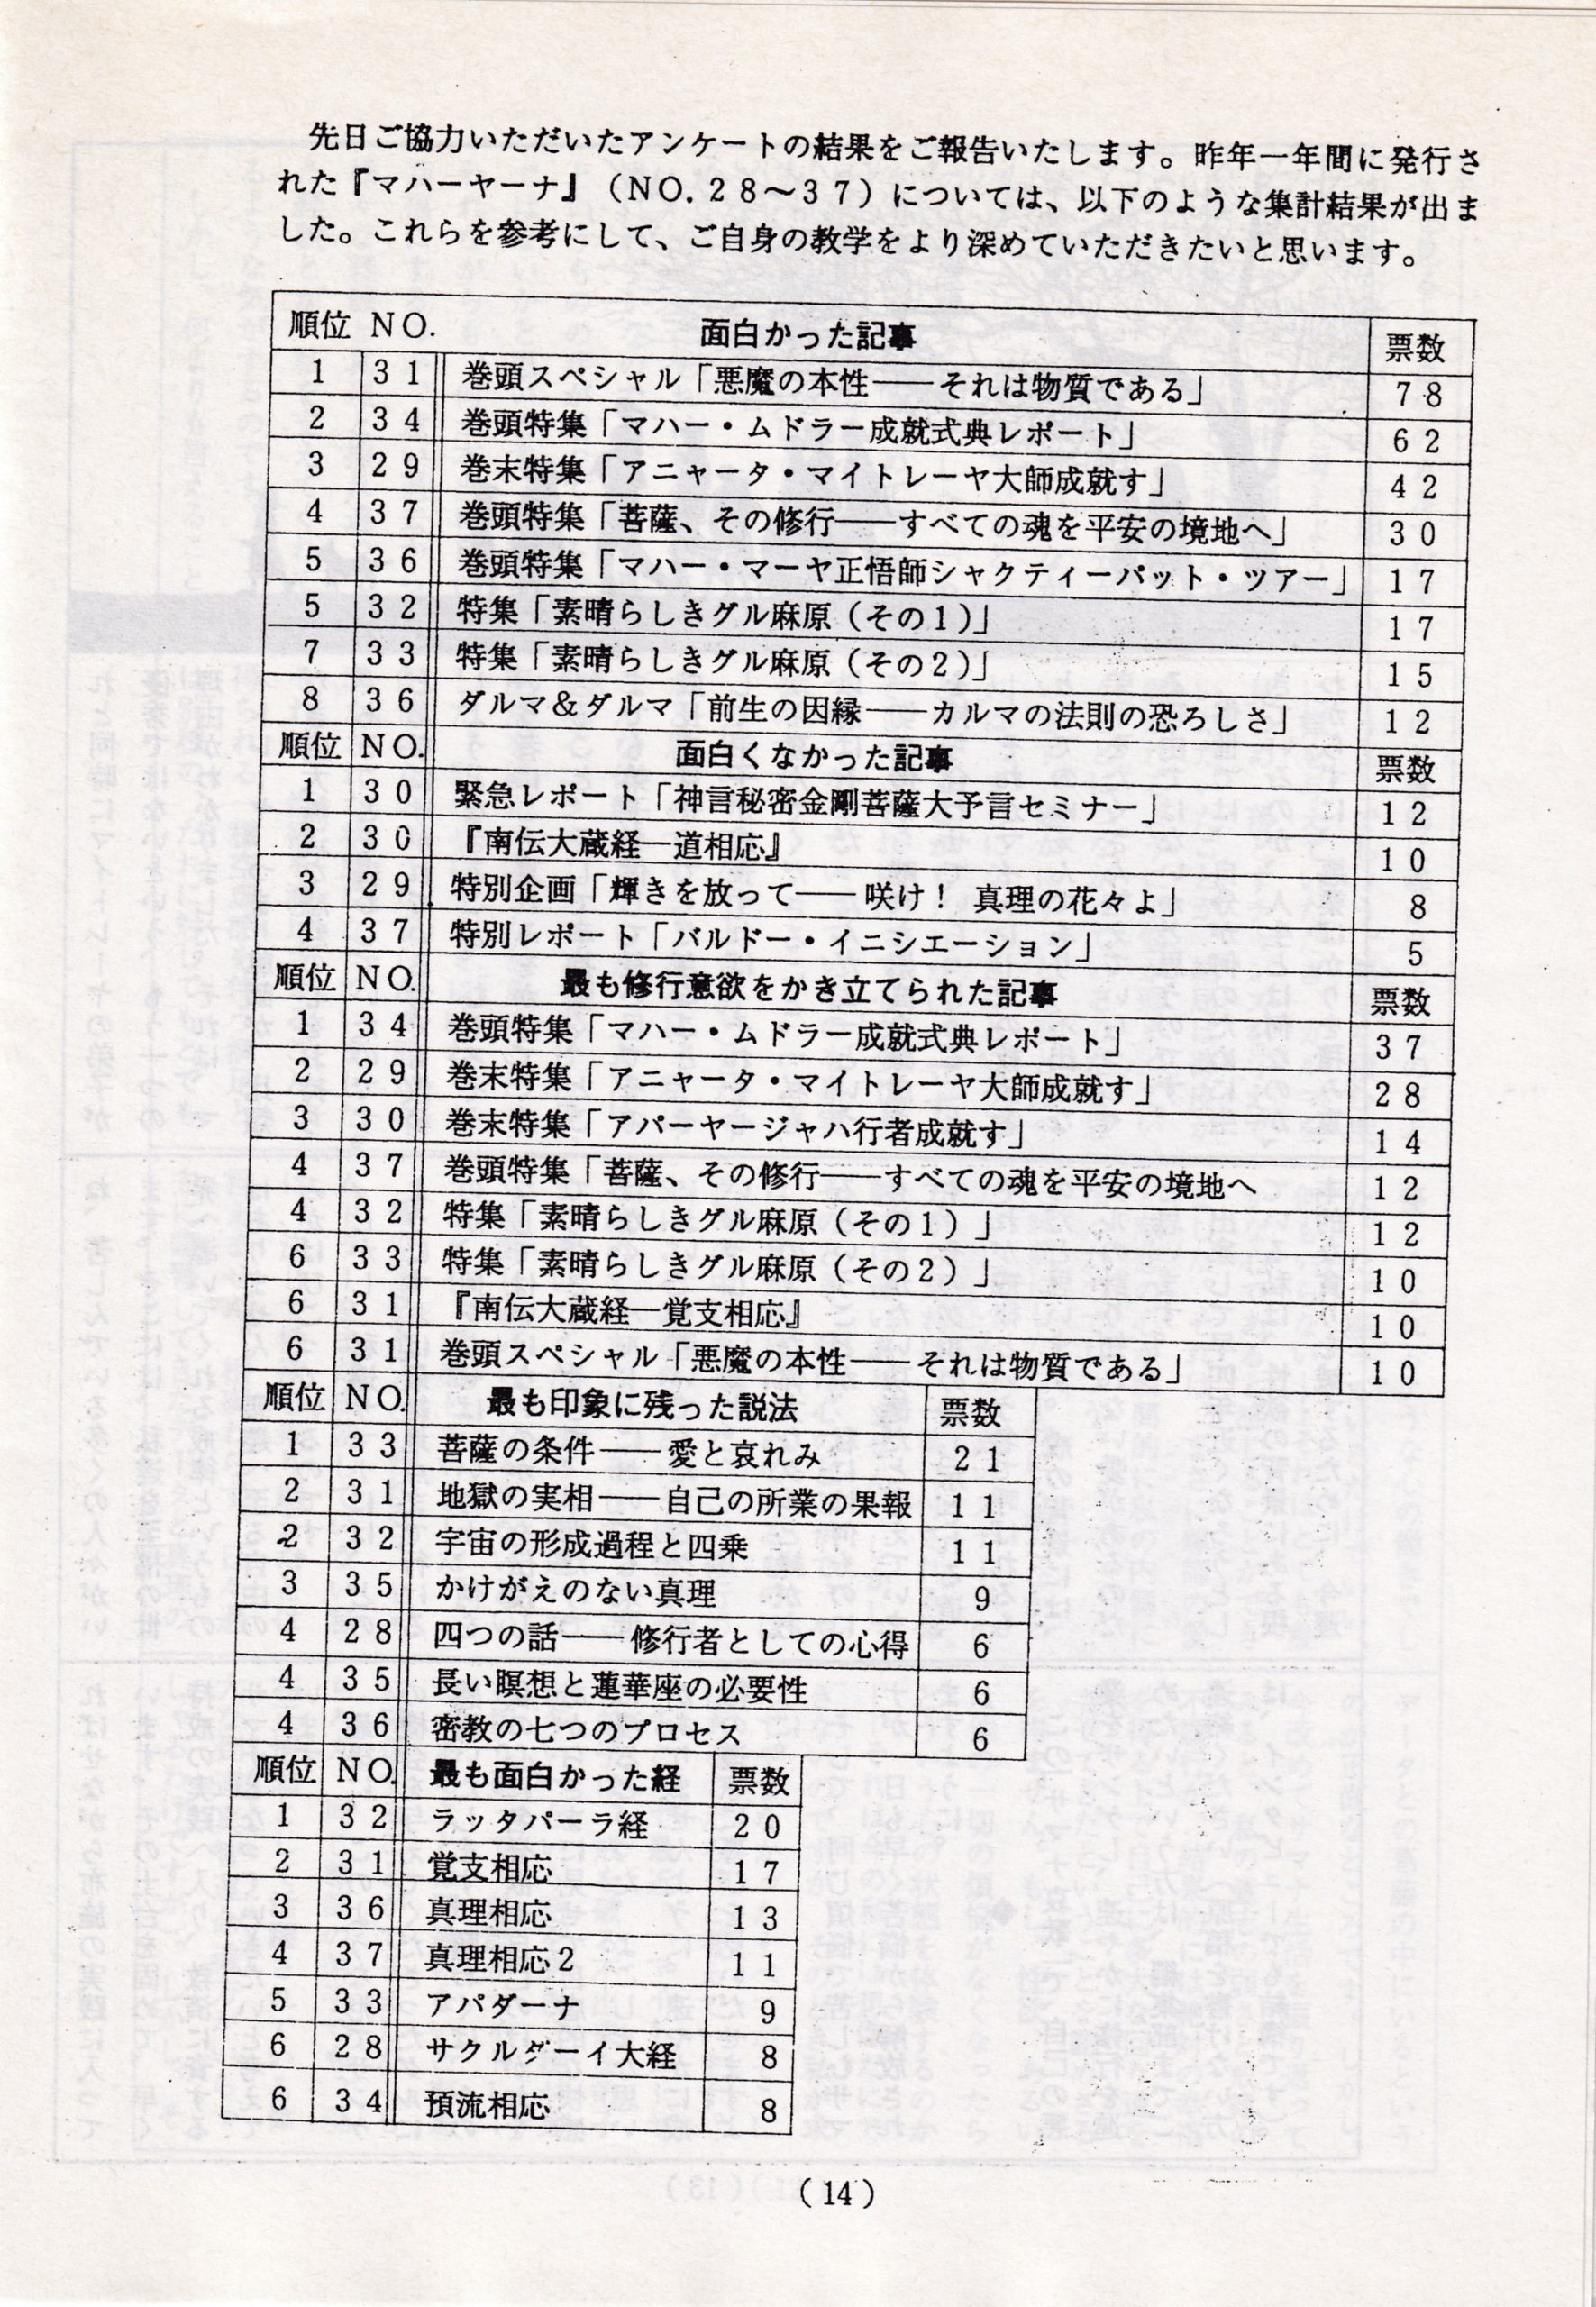 先日ご協力いただいたアンケートの結果をご報告いたします。昨年一年間に発行さ
れた『マハーヤーナ』（NO.28～37）については、以下のような集計結果が出ま
した。これらを参考にして、ご自身の教学をより深めていただきたいと思います。
順位 NO. 面白かった記事 票数
1 31 巻頭スペシャル「悪魔の本性――それは物質である」 78
2 34 巻頭特集「マハー・ムドラー成就式典レポート」 62
3 29 巻末特集「アニャータ・マイトレーヤ大師成就す」 42
4 37 巻頭特集「菩薩、その修行――すべての魂を平安の境地へ」 30
5 36 巻頭特集「マハー・マーヤ正悟師シャクティーパット・ツアー」 17
5 32 特集「素晴らしきグル麻原（その1）」 17
7 33 特集「素晴らしきグル麻原（その2）」 15
8 36 ダルマ＆ダルマ「前生の因縁――カルマの法則の恐ろしさ」 12
順位 NO. 面白くなかった記事 票数
1 30 緊急レポート「神言秘密金剛菩薩大予言セミナー」 12
2 30 『南伝大蔵経―道相応』 10
3 29 特別企画「輝きを放って――咲け！ 真理の花々よ」 8
4 37 特別レポート「バルドー・イニシエーション」 5
順位 NO. 最も修行意欲をかき立てられた記事 票数
1 34 巻頭特集「マハー・ムドラー成就式典レポート」 37
2 29 巻末特集「アニャータ・マイトレーヤ大師成就す」 28
3 30 巻末特集「アパーヤージャハ行者成就す」 14
4 37 巻頭特集「菩薩、その修行――すべての魂を平安の境地へ 12
4 32 特集「素晴らしきグル麻原（その1）」 12
6 33 特集「素晴らしきグル麻原（その2）」 10
6 31 『南伝大蔵経―覚支相応』 10
6 31 巻頭スペシャル「悪魔の本性――それは物質である」 10
順位 NO. 最も印象に残った説法 票数
1 33 菩薩の条件――愛と哀れみ 21
2 31 地獄の実相――自己の所業の果報 11
2 32 宇宙の形成過程と四乗 11
3 35 かけがえのない真理 9
4 28 四つの話――修行者としての心得 6
4 35 長い瞑想と蓮華座の必要性 6
4 36 密教の七つのプロセス 6
順位 NO. 最も面白かった経 票数
1 32 ラッタパーラ経 20
2 31 覚支相応 17
3 36 真理相応 13
4 37 真理相応2 11
5 33 アパダーナ 9
6 28 サクルダーイ大経 8
6 34 預流相応 8
（14）